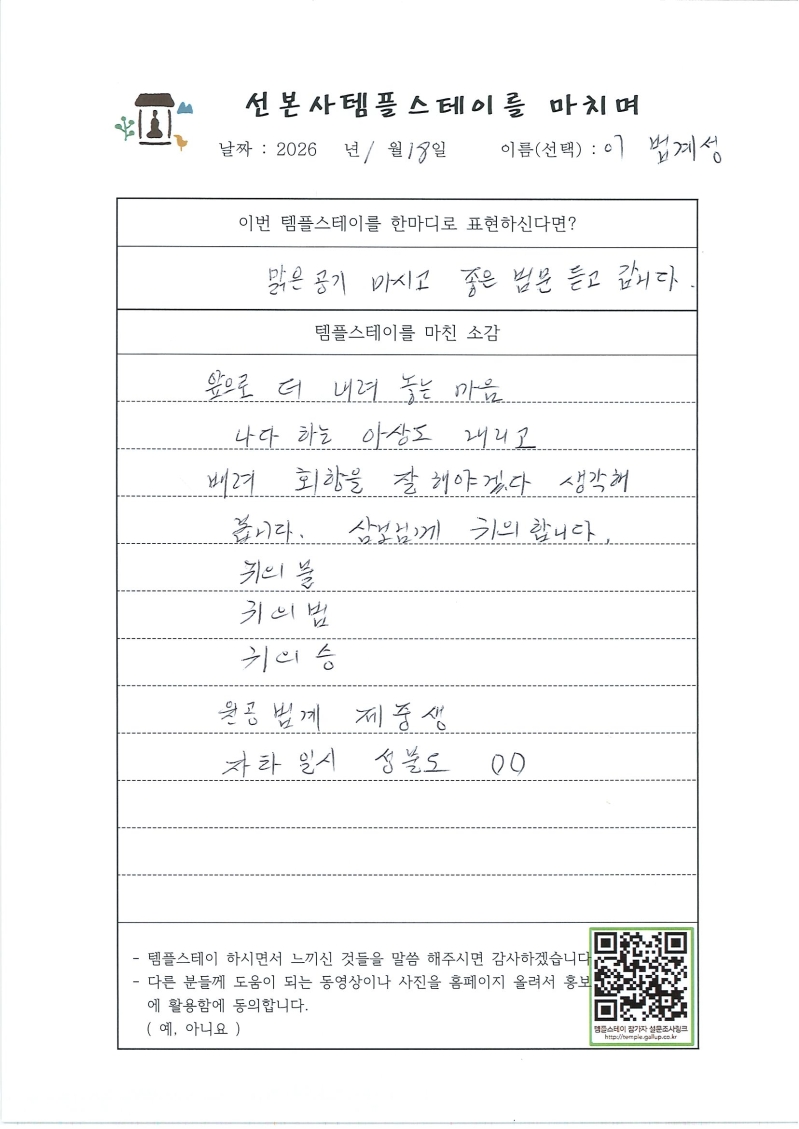 선본사템플스테이를 마치며
날짜 : 2026 년 1 월 18일 이름(선택) : 이 법계성
이번 템플스테이를 한마디로 표현하신다면?
맑은 공기 마시고 좋은 법문 듣고 갑니다.
템플스테이를 마친 소감
앞으로 더 내려 놓는 마음
나다 하는 아상도 내리고
배려 회향을 잘 해야겠다 생각해
봅니다. 삼보님께 귀의 합니다.
귀의 불
귀의 법
귀의 승
원공 법계 제중생
자타 일시 성불도 00
- 템플스테이 하시면서 느끼신 것들을 말씀 해주시면 감사하겠습니다
- 다른 분들께 도움이 되는 동영상이나 사진을 홈페이지 올려서 홍보
에 활용함에 동의합니다.
( 예, 아니요 )
템플스테이 참가자 설문조사링크
http://temple.gallup.co.kr